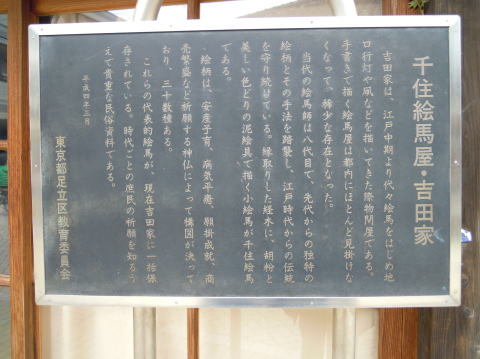 千住絵馬屋・吉田家
吉田家は、江戸中期より代々絵馬をはじめ地
口行灯や凧などを描いてきた際物問屋である。
手書きで描く絵馬屋は都内にほとんど見掛けな
くなって、稀少な存在となった。
当代の絵馬師は八代目で、先代からの独特の
絵柄とその手法を踏襲し、江戸時代からの伝統
を守り続けている。縁取りした経木に、胡粉と
美しい色どりの泥絵具で描く小絵馬が千住絵馬
である。
絵柄は、安産子育、病気平癒、願掛成就、商
売繁盛など祈願する神仏によって構図が決って
おり、三十数種ある。
これらの代表的絵馬が、現在吉田家に一括保
存されている。時代ごとの庶民の祈願を知るう
えで貴重な民俗資料である。
平成四年三月
東京都足立区教育委員会